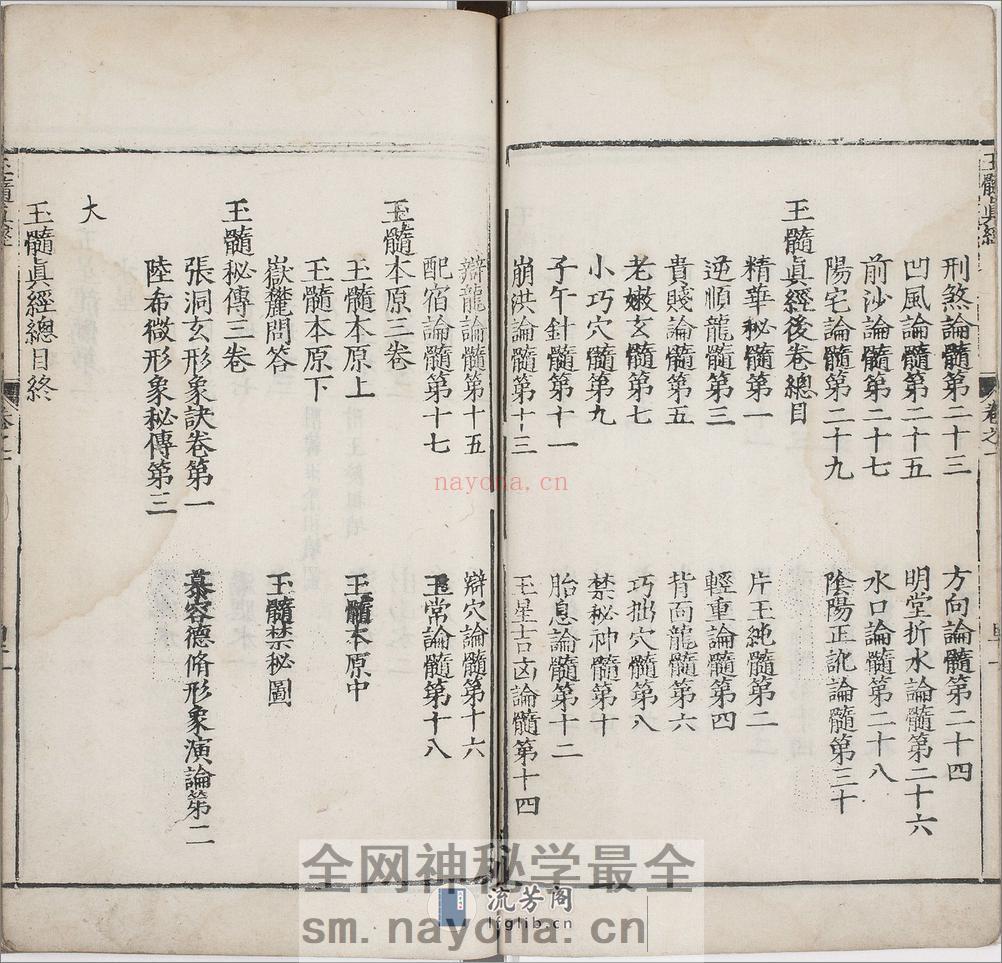 玉髓真經
卷之一
刑煞論髓第二十三　方向論髓第二十四
凹風論髓第二十五　明堂折水論髓第二十六
前沙論髓第二十七　水口論髓第二十八
陽宅論髓第二十九　陰陽正訛論髓第三十
玉髓眞經後卷總目
精華秘髓第一　片玉純髓第二
逆順龍髓第三　輕重論髓第四
貴賤論髓第五　背面龍髓第六
老嫩玄髓第七　巧拙穴髓第八
小巧穴髓第九　禁秘神髓第十
子午針髓第十一　胎息論髓第十二
崩洪論髓第十三　五星吉凶論髓第十四
辯龍論髓第十五　辯穴論髓第十六
配宿論髓第十七　玉常論髓第十八
玉髓本原三卷
玉髓本原上　玉髓本原中
玉髓本原下
嶽麓問答　玉髓禁秘圖
玉髓秘傳三卷
張洞玄形象訣卷第一　慕容德脩形象演論第二
陸希微形象秘傳第三
大
玉髓眞經總目終
玉髓真經
nayona.cn
全网神秘学最全
流芳阁
lfglib.cn
sm.nayona.cn